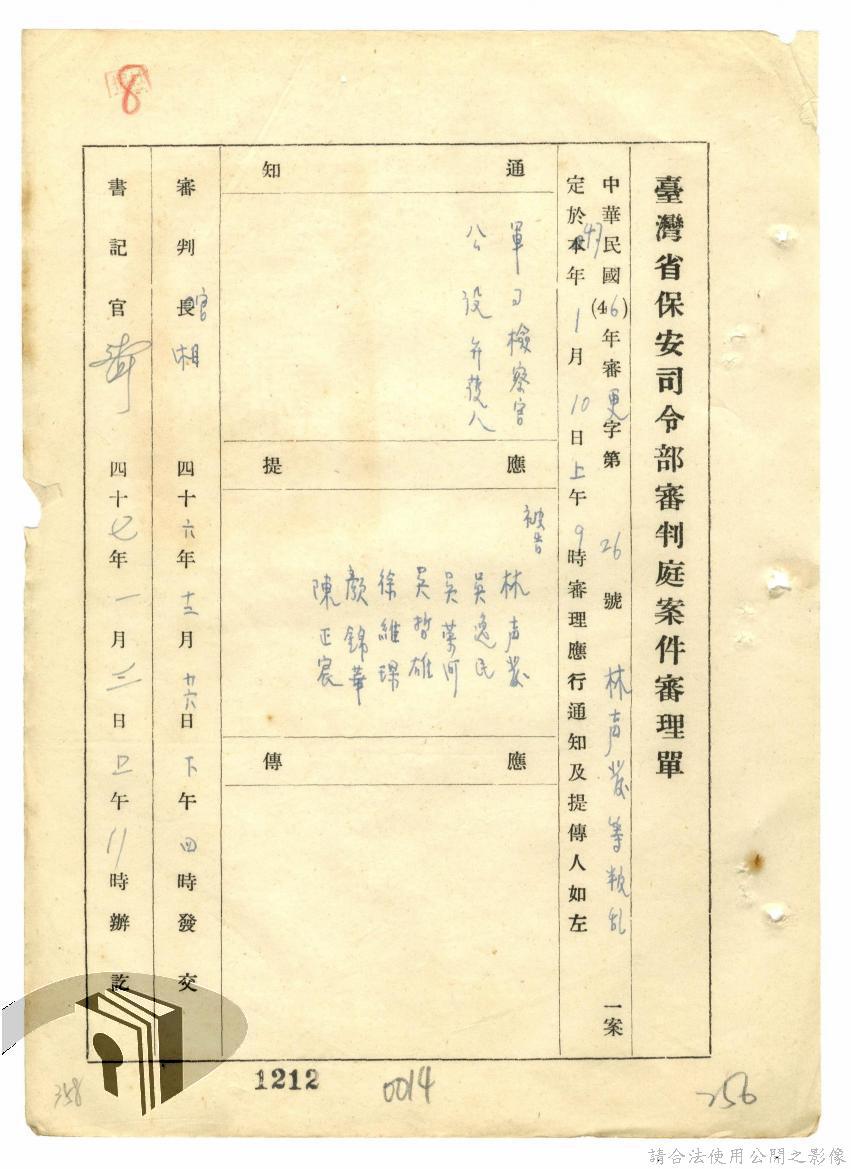 8
臺灣省保安司令部審判庭案件審理單
中華民國(46)年審更字第26號林声發等叛乱一案
定於47年1月10日上午9時審理應行通知及提傳人如左
通知
軍司檢察官
公設弁護人
應提
被告
林声發
吳逸民
吳榮河
吳哲雄
徐維琛
顏錦華
陳正宸
應傳
審判長官 相 四十六年十二月廿六日下午四時發交
書記官 四十七年一月三日上午11時辦訖
1212
0014
358
256
請合法使用公開之影像